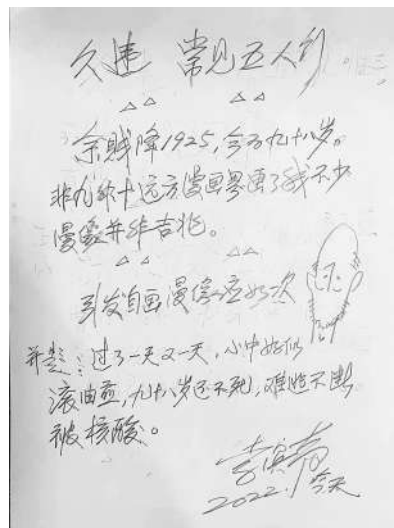 久违 常见五人
余贱降1925,今为九十八岁。
远方漫画界画了我不少
漫像并非吉兆。
引发自画漫像应 一次
并题:过了一天又一天,心中好似
滚油煎,九十八岁还不死,难逃不断
被核酸。
李滨声
2022.今天